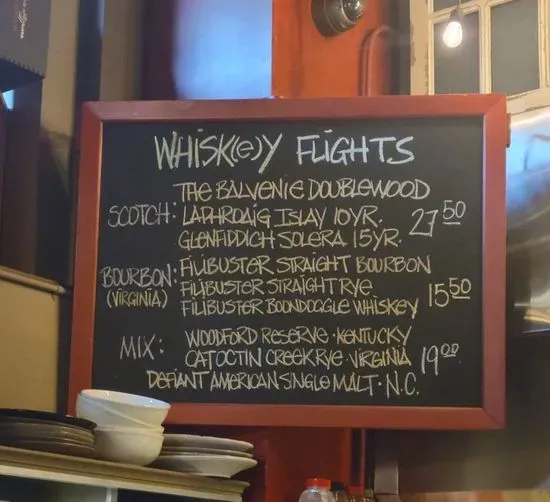 WHISK(E)Y FLIGHTS
THE BALVENIE DOUBLEWOOD
SCOTCH: LAPHROAIG ISLAY 10YR. 27 50
GLENFIDDICH SOLERA 15YR.
BOURBON: FILIBUSTER STRAIGHT BOURBON
(VIRGINIA) FILIBUSTER STRAIGHT RYE 15 50
FILIBUSTER BOONDOGGLE WHISKEY
WOODFORD RESERVE · KENTUCKY
MIX: CATOCTIN CREEK RYE · VIRGINIA 19 00
DEFIANT AMERICAN SINGLE MALT · N.C.